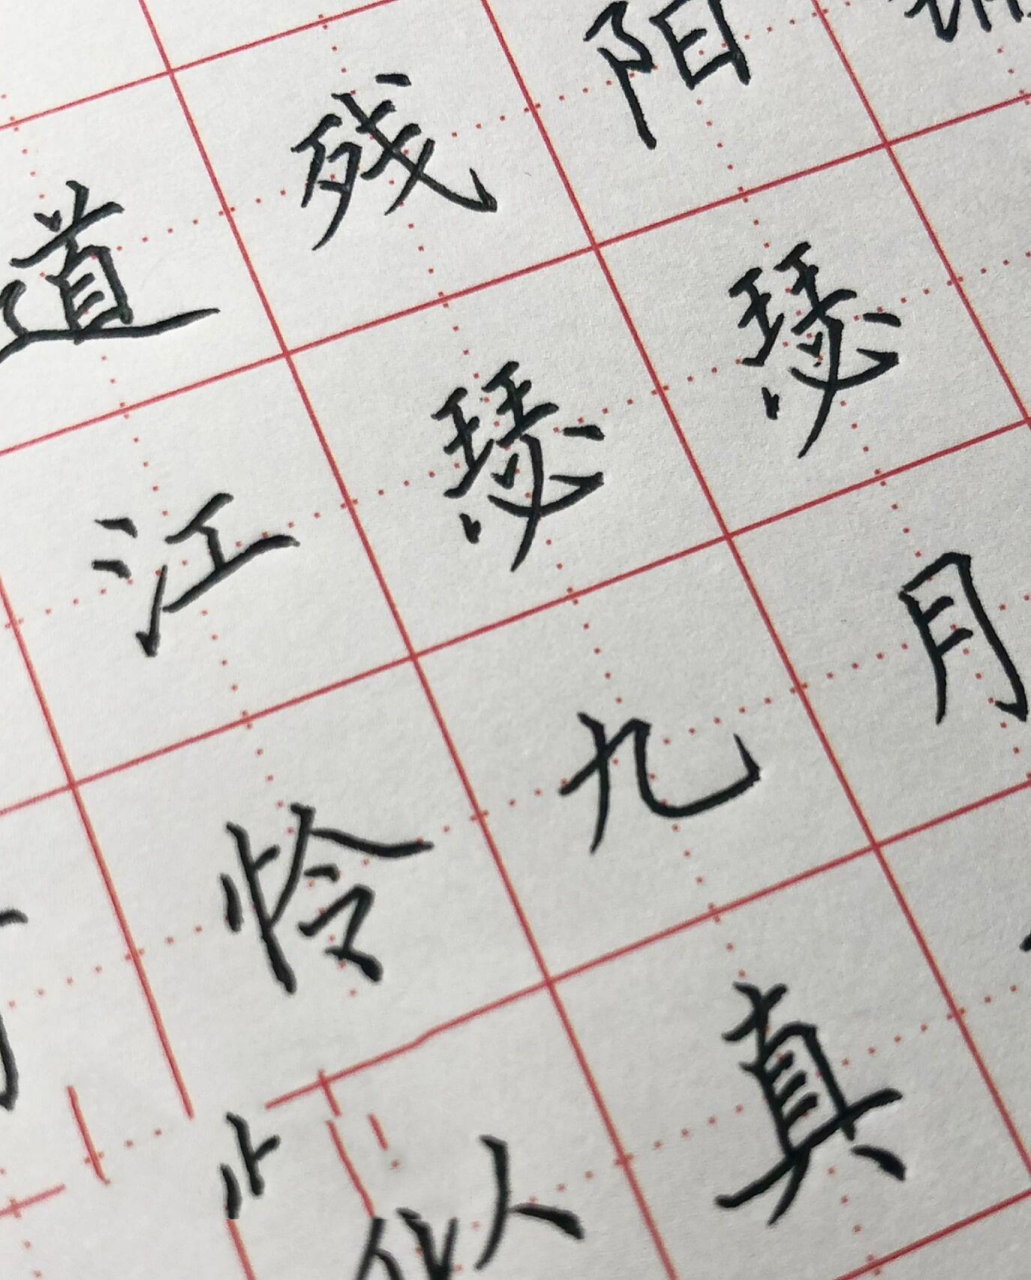 道残阳铺
江瑟瑟
怜九月
似真